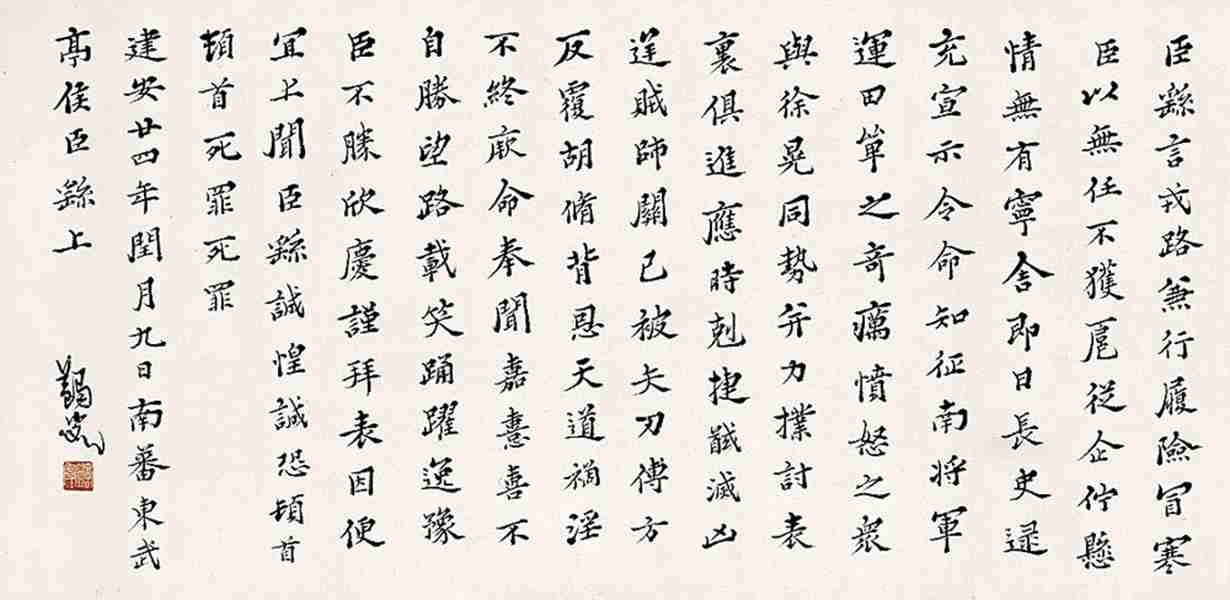 臣繇言戎路兼行履險冒寒
臣以無任不獲扈從企佇懸
情無有寧舍即日長史逯
充宣示令命知征南將軍
運田單之奇癘憤怒之衆
與徐晃同勢并力撲討表
裏俱進應時剋捷馘滅凶
逆賊帥關已被矢刃傅方
反覆胡脩背恩天道禍淫
不終厥命奉聞嘉憙喜不
自勝望路載笑踴躍逸豫
臣不勝欣慶謹拜表因便
宜上聞臣繇誠惶誠恐頓首
頓首死罪死罪
建安廿四年閏月九日南蕃東武
亭侯臣繇上